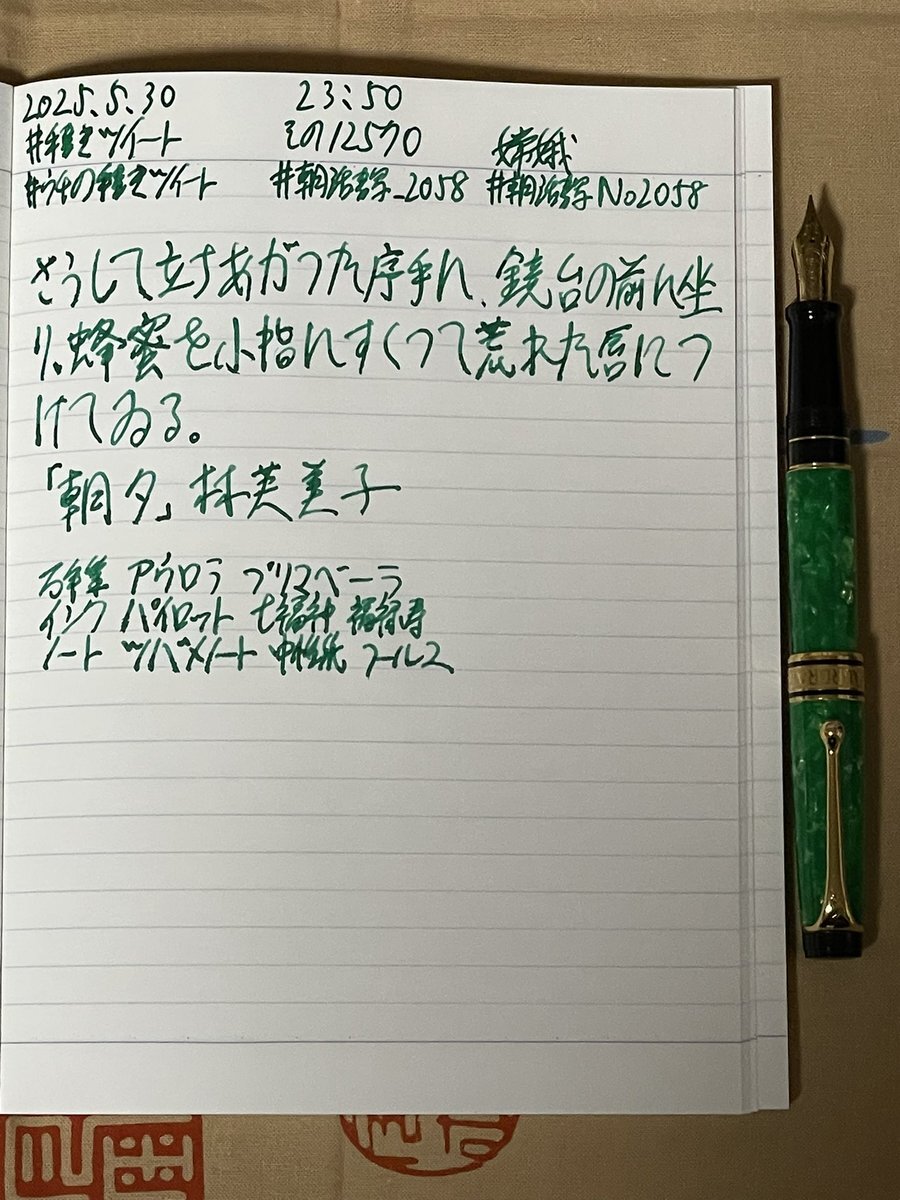 2025.5.30 23:50
#手書きツイート その12570 嫦娥
#ウチの手書きツイート #朝活書写_2058 #朝活書写No2058
さうして立ちあがつた序手に、鏡台の前に坐
り、蜂蜜を小指にすくつて荒れた唇につ
けてゐる。
「朝夕」林芙美子
万年筆 アウロラ プリマベーラ
インク パイロット 七福神 福禄寿
ノート ツバメノート 中性紙 フールス